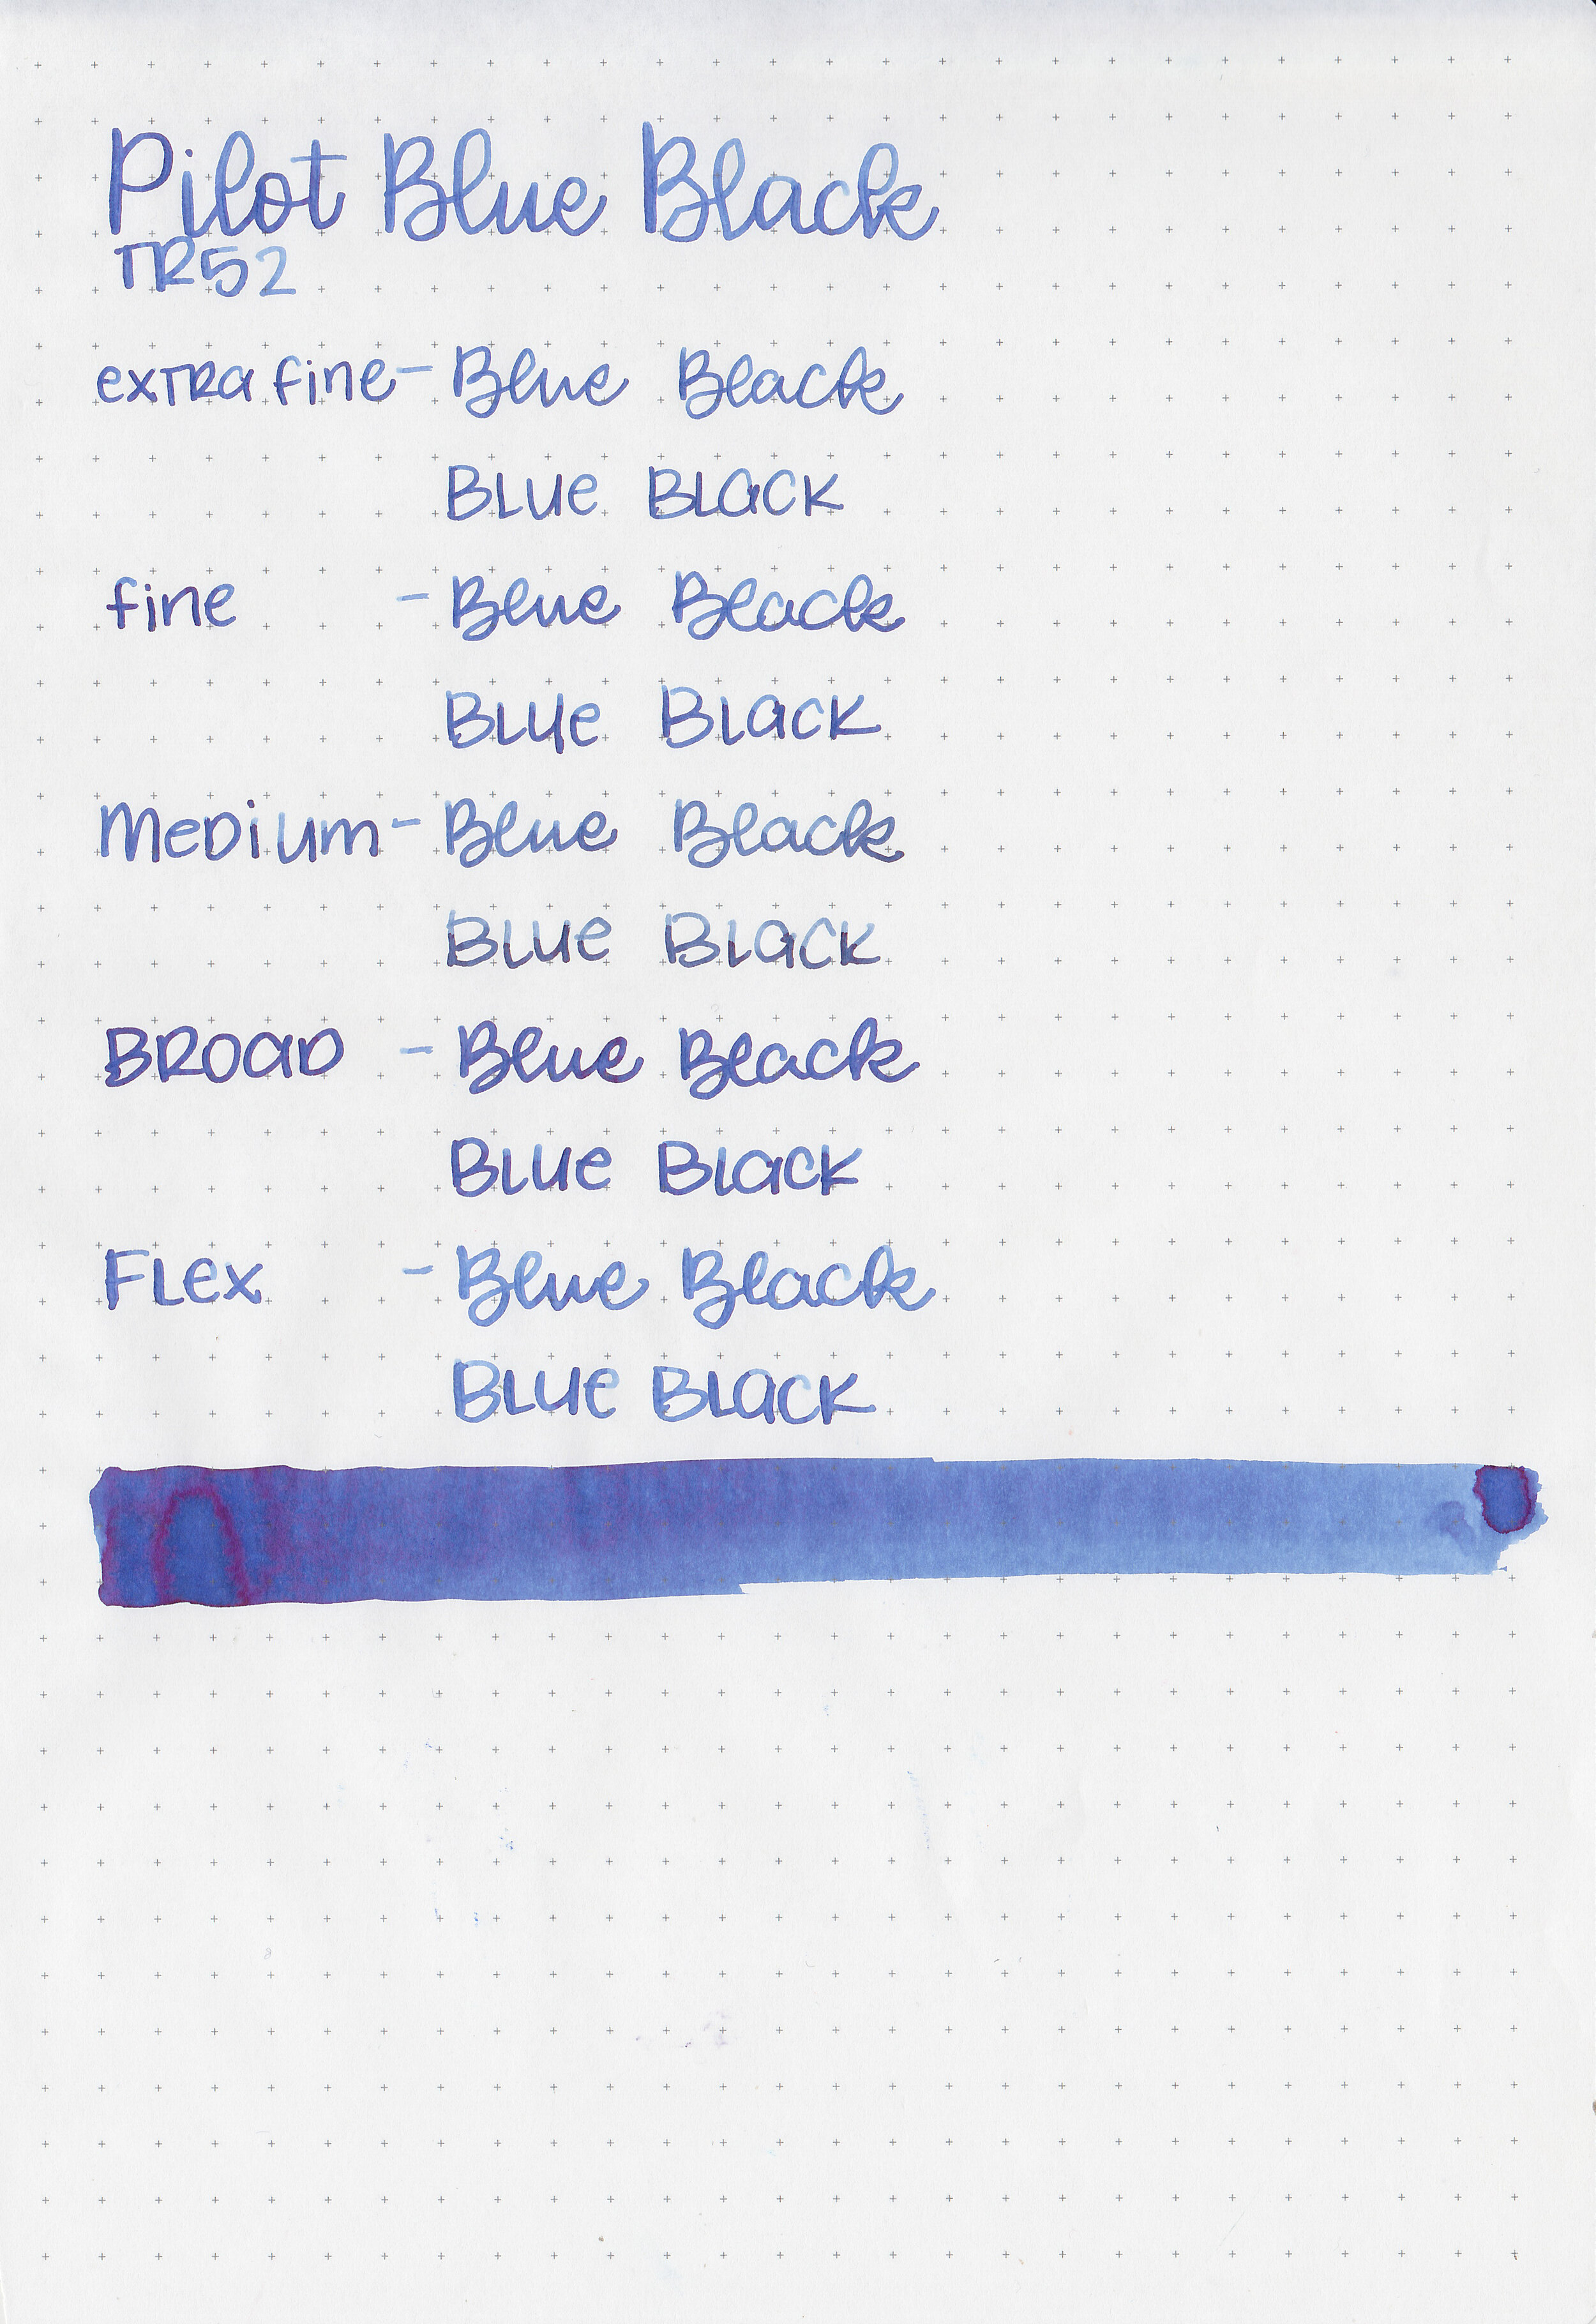 Pilot Blue Black
TR52
extra fine - Blue Black
Blue Black
fine - Blue Black
Blue Black
Medium - Blue Black
Blue Black
Broad - Blue Black
Blue Black
Flex - Blue Black
Blue Black